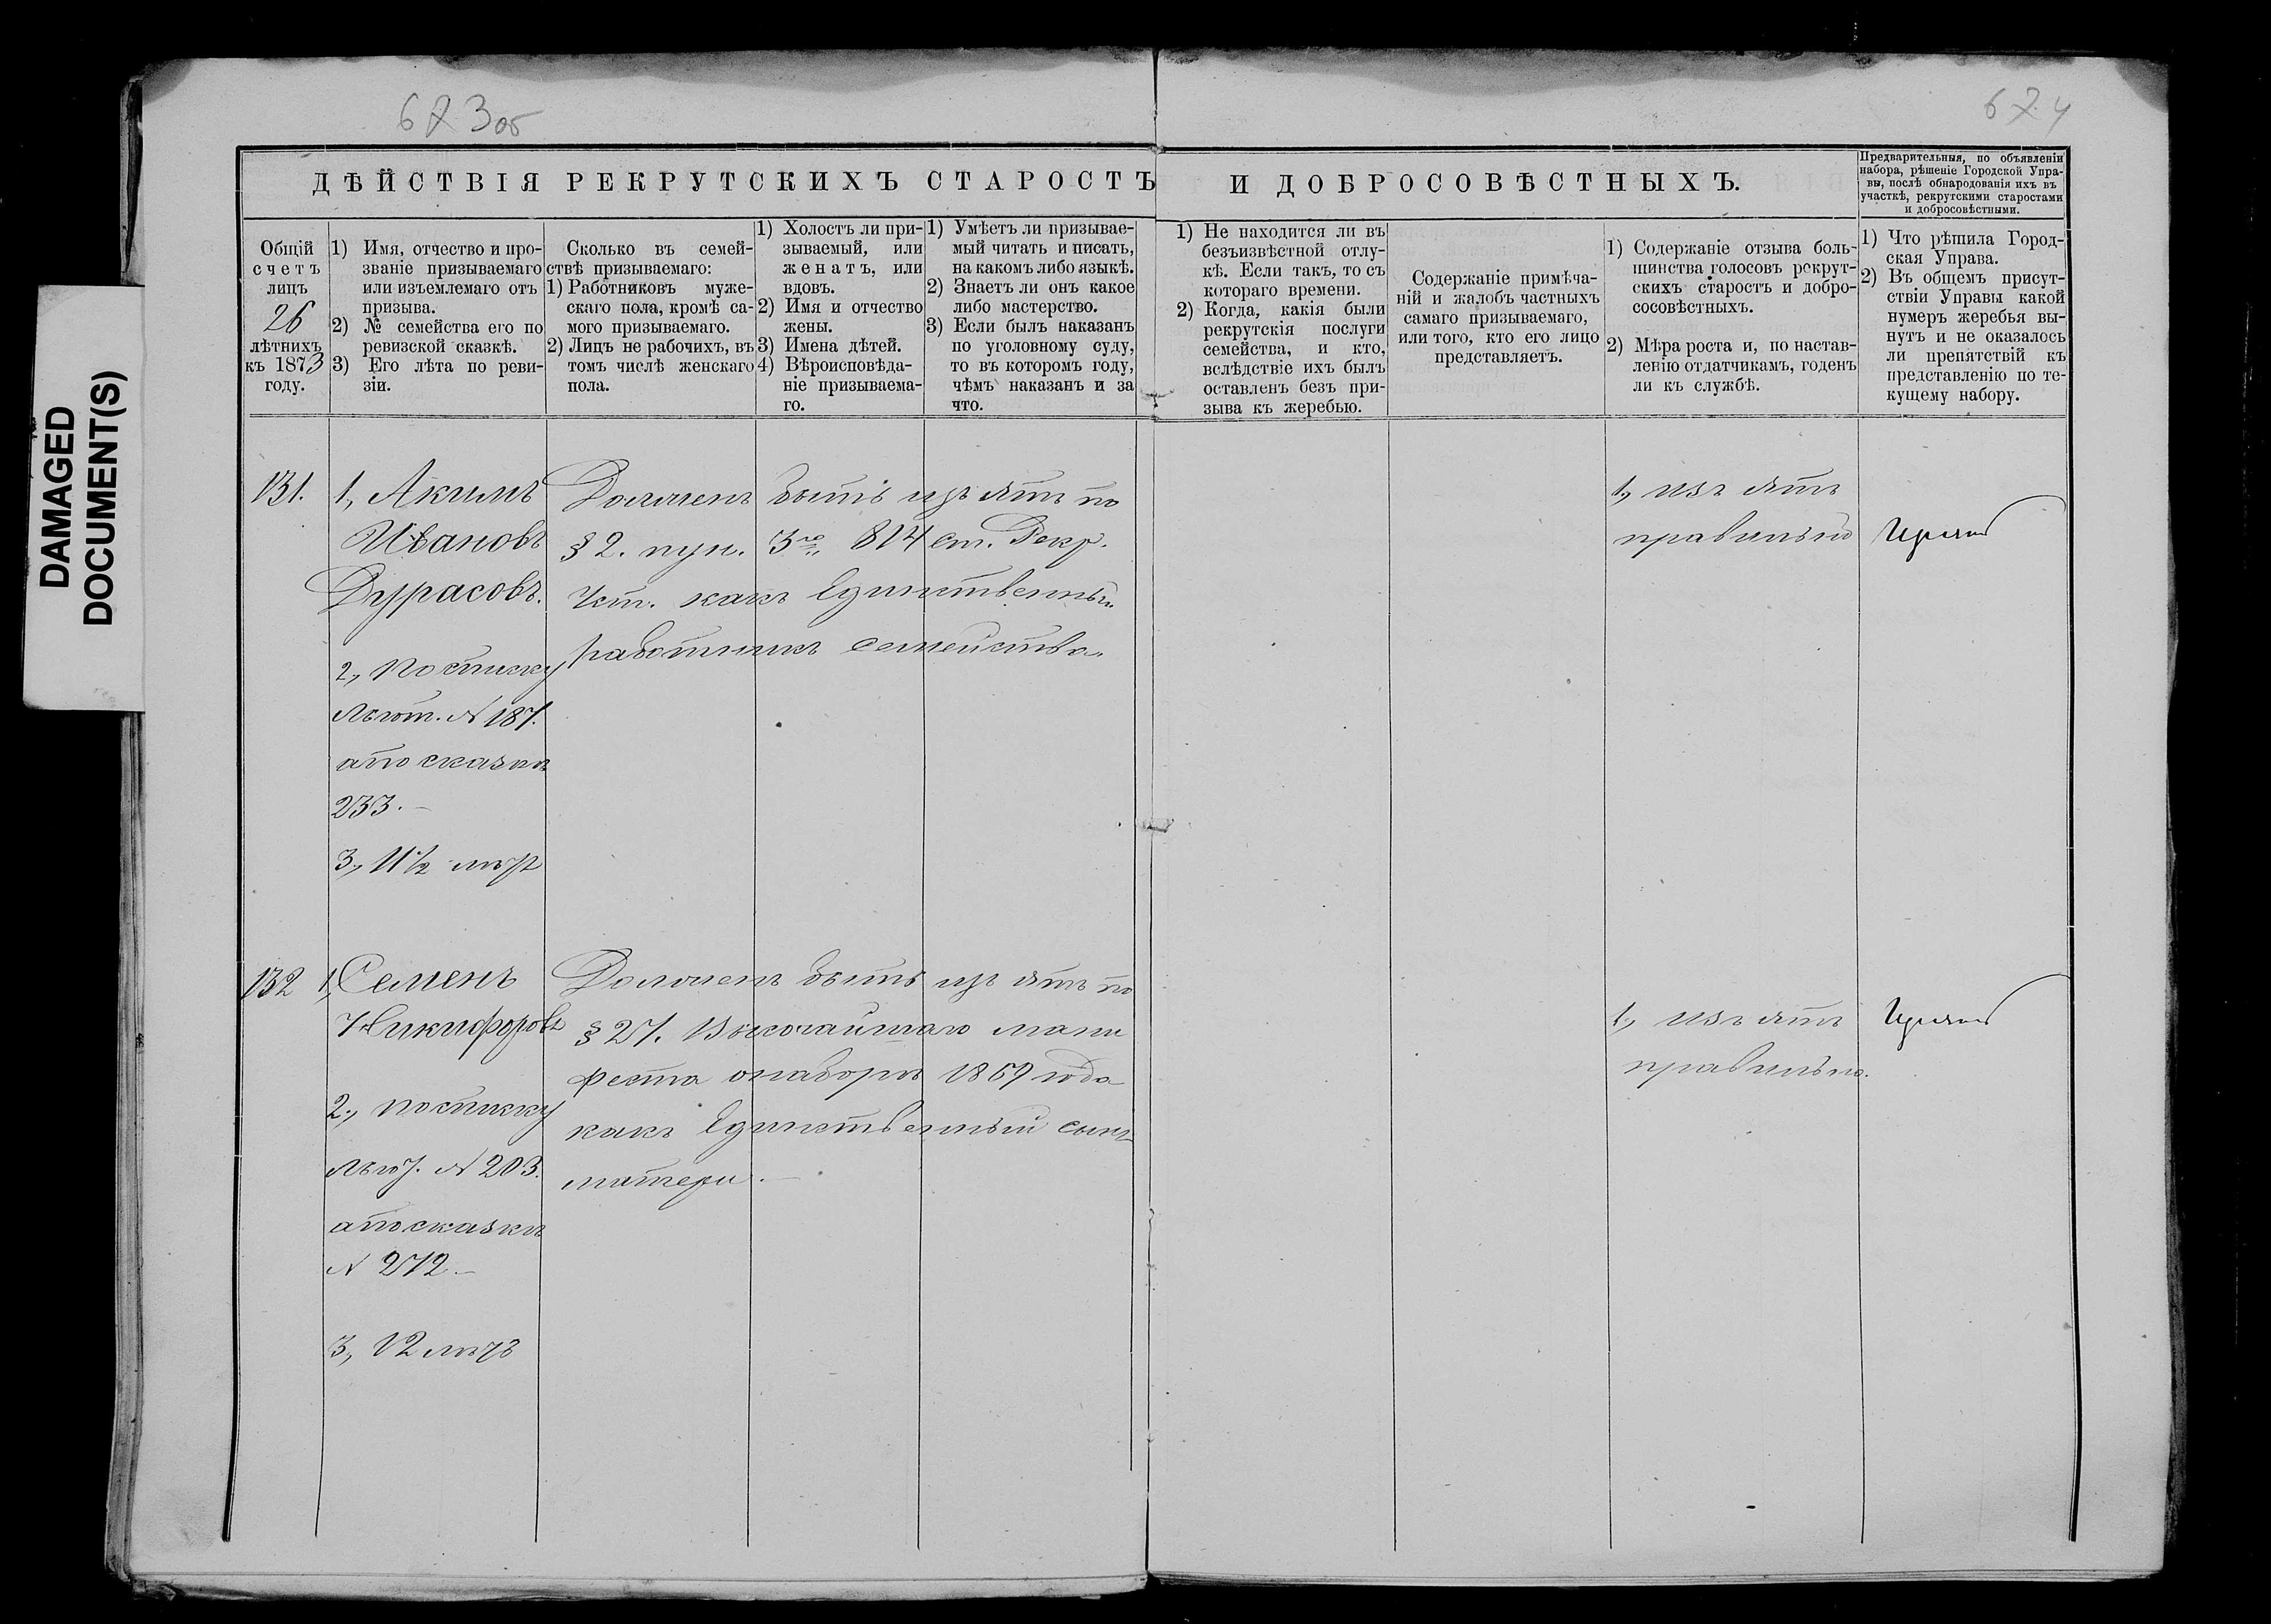 673 об
674
DAMAGED
DOCUMENT(S)
ДѢЙСТВІЯ РЕКРУТСКИХЪ СТАРОСТЪ И ДОБРОСОВѢСТНЫХЪ.
Предварительныя, по объявленіи
набора, рѣшеніе Городской Упра-
вы, послѣ обнародованія ихъ въ
участкѣ, рекрутскими старостами
и добросовѣстными.
Общій
счетъ
лицъ
26
лѣтнихъ
къ 1873
году.
1) Имя, отчество и про-
званіе призываемаго
или изъемлемаго отъ
призыва.
2) № семейства его по
ревизской сказкѣ.
3) Его лѣта по реви-
зіи.
Сколько въ семей-
ствѣ призываемаго:
1) Работниковъ муже-
скаго пола, кромѣ са-
мого призываемаго.
2) Лицъ не рабочихъ, въ
томъ числѣ женскаго
пола.
1) Холостъ ли при-
зываемый, или
женатъ, или
вдовъ.
2) Имя и отчество
жены.
3) Имена дѣтей.
4) Вѣроисповѣда-
ніе призываема-
го.
1) Умѣетъ ли призывае-
мый читать и писать,
на какомъ либо языкѣ.
2) Знаетъ ли онъ какое
либо мастерство.
3) Если былъ наказанъ
по уголовному суду,
то въ которомъ году,
чѣмъ наказанъ и за
что.
1) Не находится ли въ
безъизвѣстной отлу-
кѣ. Если такъ, то съ
котораго времени.
2) Когда, какія были
рекрутскія послуги
семейства, и кто,
вслѣдствіе ихъ былъ
оставленъ безъ при-
зыва къ жеребью.
Содержаніе примѣча-
ній и жалобъ частныхъ
самаго призываемаго,
или того, кто его лицо
представляетъ.
1) Содержаніе отзыва боль-
шинства голосовъ рекрут-
скихъ старостъ и добро-
совѣстныхъ.
2) Мѣра роста и, по настав-
ленію отдатчикамъ, годенъ
ли къ службѣ.
1) Что рѣшила Город-
ская Управа.
2) Въ общемъ присут-
ствіи Управы какой
нумеръ жеребья вы-
нутъ и не оказалось
ли препятствій къ
представленію по те-
кущему набору.
131.
1, Акимъ
Ивановъ
Дурасовъ.
2, по списку
льгот. № 187.
а по сказкѣ
233.
3, 11½ лѣтъ
Долженъ быть изъятъ по
§ 2. пун. 3го 814 ст. Рекр.
Уст. какъ Единственный
работникъ семейства.
1, изъятъ
правильно
132
1, Семенъ
Никифоровъ
2, по списку
льгот. № 203.
а по сказкѣ
№ 272.
3, 12 лѣтъ
Долженъ быть изъятъ по
§ 27. Высочайшаго мани
феста о наборѣ 1869 года
какъ Единственный сынъ
матери.
1, изъятъ
правильно.